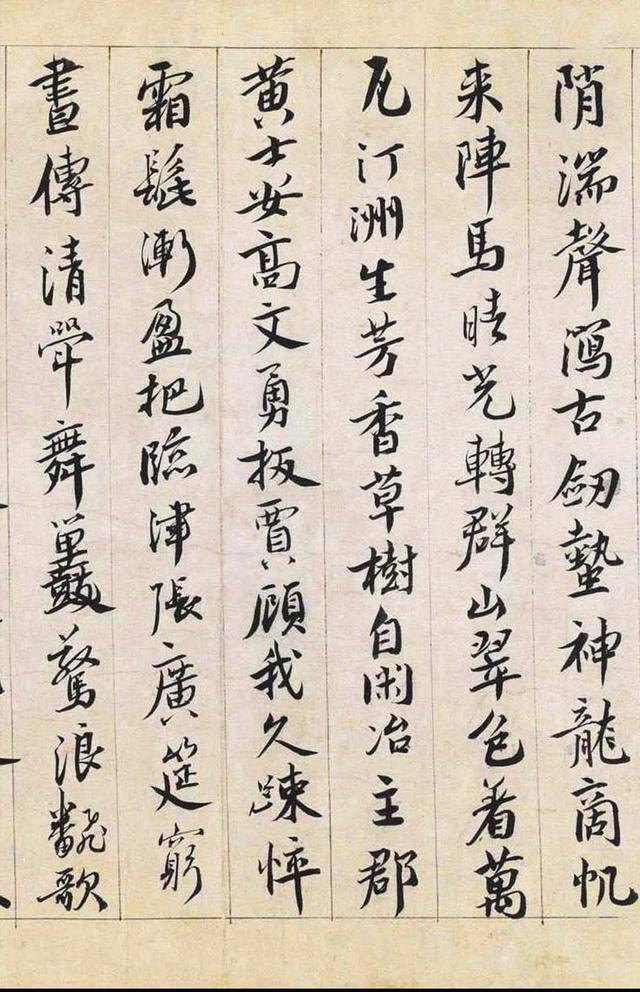 陗湍聲瀉古劒蟄神龍商帆
来陣馬晴光轉群山翠色着萬
瓦汀洲生芳香草樹自閑冶主郡
黄士安高文勇扳賈顧我久踈悴
霜髭漸盈把臨津張廣筵窮
晝傳清斝舞鼉驚浪飜歌